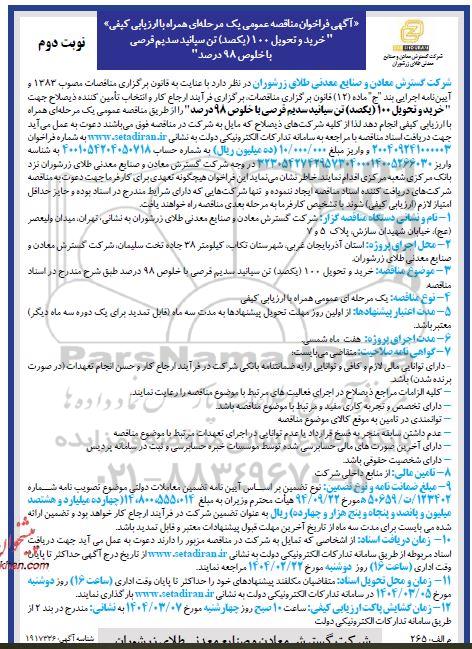 « آگهی فراخوان مناقصه عمومی یک مرحله‌ای همراه با ارزیابی کیفی»
" خرید و تحویل ۱۰۰ (یکصد) تن سیانید سدیم قرصی
با خلوص ۹۸ درصد"
نوبت دوم
شرکت گسترش معادن و صنایع
معدنی طلای زرشوران
شرکت گسترش معادن و صنایع معدنی طلای زرشوران در نظر دارد با عنایت به قانون برگزاری مناقصات مصوب ۱۳۸۳ و
آیین‌نامه اجرایی بند "ج" ماده (۱۲) قانون برگزاری مناقصات، برگزاری فرآیند ارجاع کار و انتخاب تأمین کننده ذیصلاح جهت
"خرید و تحویل ۱۰۰ (یکصد) تن سیانید سدیم قرصی با خلوص ۹۸ درصد" را از طریق مناقصه عمومی یک مرحله‌ای همراه
با ارزیابی کیفی انجام دهد لذا از کلیه شرکت‌های ذیصلاح که مایل به شرکت در مناقصه فوق می‌باشند دعوت به عمل می‌آید
جهت دریافت اسناد مناقصه با مراجعه به سامانه تدارکات الکترونیکی دولت به نشانی www.setadiran.ir به شماره فراخوان
۲۰۰۴۰۹۴۲۱۰۰۰۰۰۳ و واریز مبلغ ۱۰/۰۰۰/۰۰۰ (ده میلیون ریال) به شماره حساب ۴۰۰۱۰۵۴۲۰۴۰۵۰۷۱۸ به شناسه
واریز در وجه شرکت گسترش معادن و صنایع معدنی طلای زرشوران نزد
بانک مرکزی شعبه مرکزی اقدام نمایند خاطر نشان می‌نماید این فراخوان هیچگونه تعهدی برای کارفرما جهت دعوت به مناقصه
شرکت‌های دریافت کننده اسناد مناقصه ایجاد ننموده و تنها شرکت‌هایی که دارای شرایط مندرج در اسناد بوده و حایز حداقل
امتیاز لازم (ارزیابی کیفی) شوند با تشخیص کارفرما به مرحله بعدی مناقصه راه خواهند یافت.
۱- نام و نشانی دستگاه مناقصه گزار: شرکت گسترش معادن و صنایع معدنی طلای زرشوران به نشانی، تهران، میدان ولیعصر
(عج)، خیابان شهیدان سازش، پلاک ۵ و ۷
۲- محل اجرای پروژه: استان آذربایجان غربی، شهرستان تکاب، کیلومتر ۳۸ جاده تخت سلیمان، شرکت گسترش معادن و
صنایع معدنی طلای زرشوران.
۳- موضوع مناقصه: خرید و تحویل ۱۰۰ (یکصد) تن سیانید سدیم قرصی با خلوص ۹۸ درصد طبق شرح مندرج در اسناد
مناقصه
۴- نوع مناقصه: یک مرحله ای عمومی همراه با ارزیابی کیفی
۵- مدت اعتبار پیشنهادها: از اولین روز مهلت تحویل پیشنهادها به مدت سه ماه (قابل تمدید برای یک دوره سه ماه دیگر)
معتبر باشد.
۶- مدت اجرای پروژه: هفت ماه شمسی.
۷- گواهی نامه صلاحیت: متقاضی می‌بایست:
- دارای توانایی مالی لازم و کافی و توانایی ارایه ضمانتنامه بانکی شرکت در فرآیند ارجاع کار و حسن انجام تعهدات (در صورت
برنده شدن) باشد
- کلیه الزامات مراجع ذیصلاح در اجرای فعالیت های مرتبط با موضوع مناقصه را رعایت نمایند.
- دارای تخصص و تجربه کاری مفید و مرتبط با موضوع مناقصه باشد.
- توانمندی در تامین به موقع کالای موضوع مناقصه
- عدم داشتن سابقه منجر به فسخ قرارداد یا عدم توانایی در اجرای تعهدات مرتبط با موضوع مناقصه
- دارای آخرین صورت های مالی حسابرسی شده توسط موسسات خبره حسابرسی و ثبت در سامانه پردیس
- دارای شخصیت حقوقی باشد.
۸- تامین مالی: از منابع داخلی شرکت
۹- مبلغ ضمانت نامه و نوع تضمین: نوع تضمین بر اساس آیین نامه تضمین معاملات دولتی موضوع تصویب نامه شماره
۱۲۳۴۰۲/ت۵۰۶۵۹هـ مورخ ۹۴/۰۹/۲۲ هیأت محترم وزیران به مبلغ ۱۴/۸۰۰/۵۵۵/۰۱۴ (چهارده میلیارد و هشتصد
میلیون و پانصد و پنجاه و پنج هزار و چهارده) ریال به عنوان تضمین شرکت در فرآیند ارجاع کار خواهد بود و تضمین ارائه
شده می بایست برای مدت سه ماه از تاریخ آخرین مهلت قبول پیشنهادات معتبر و قابل تمدید باشد.
۱۰- زمان دریافت اسناد: از اشخاصی که تمایل به شرکت در مناقصه مزبور را دارند دعوت به عمل می آید جهت دریافت
اسناد مربوطه از طریق سامانه تدارکات الکترونیکی دولت به نشانی www.setadiran.ir از تاریخ درج آگهی حداکثر تا پایان
وقت اداری (ساعت ۱۶) روز دوشنبه مورخ ۱۴۰۴/۰۲/۲۲ مراجعه نمایند.
۱۱- زمان و محل تحویل اسناد: متقاضیان مکلفند پیشنهادهای خود را حداکثر تا پایان وقت اداری (ساعت ۱۶) روز دوشنبه
مورخ ۱۴۰۴/۰۳/۰۵ در سامانه تدارکات الکترونیکی دولت به نشانی www.setadiran.ir بارگذاری نمایند.
۱۲- زمان گشایش پاکت ارزیابی کیفی: ساعت ۱۰ صبح روز چهارشنبه مورخ ۱۴۰۴/۰۳/۰۷ به نشانی: مندرج در بند ۲ از
طریق سامانه تدارکات الکترونیکی دولت
م الف: ۲۶۵
شناسه آگهی: ۱۹۱۷۳۲۶
شرکت گسترش معادن و صنایع معدنی طلای زرشوران
ParsNamadData